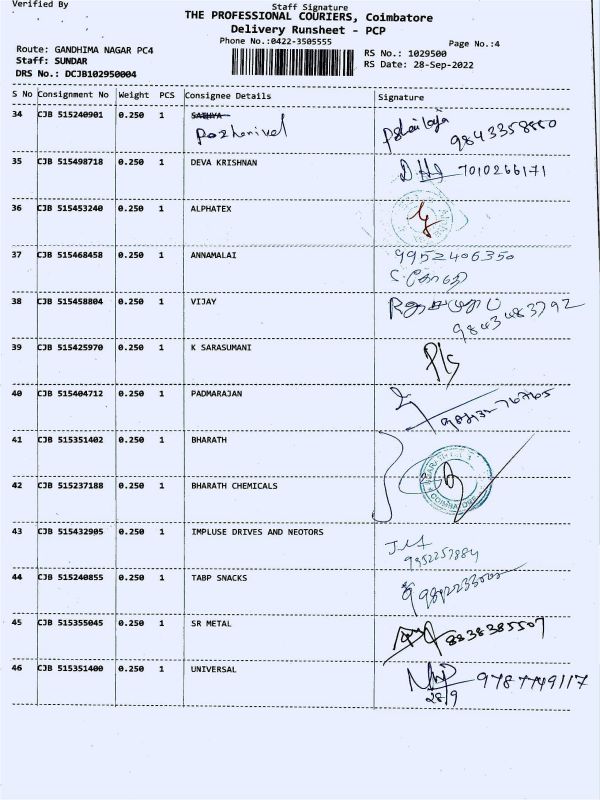 Verified By
Staff Signature
THE PROFESSIONAL COURIERS, Coimbatore
Delivery Runsheet - PCP
Phone No.:0422-3505555
Page No.:4
Route: GANDHIMA NAGAR PC4
RS No.: 1029500
Staff: SUNDAR
RS Date: 28-Sep-2022
DRS No.: DCJB102950004
S No Consignment No Weight PCS Consignee Details Signature
34 CJB 515240901 0.250 1 SATHYA
Pazhanivel 9843358880
35 CJB 515498718 0.250 1 DEVA KRISHNAN 7010266171
36 CJB 515453240 0.250 1 ALPHATEX
37 CJB 515468458 0.250 1 ANNAMALAI 9952406350
38 CJB 515458804 0.250 1 VIJAY
9843483792
39 CJB 515425970 0.250 1 K SARASUMANI
40 CJB 515404712 0.250 1 PADMARAJAN
41 CJB 515351402 0.250 1 BHARATH
42 CJB 515237188 0.250 1 BHARATH CHEMICALS
COIMBATORE
43 CJB 515432905 0.250 1 IMPLUSE DRIVES AND NEOTORS
9952257884
44 CJB 515240855 0.250 1 TABP SNACKS
45 CJB 515355045 0.250 1 SR METAL 8838385507
46 CJB 515351400 0.250 1 UNIVERSAL 9787749117
28/9